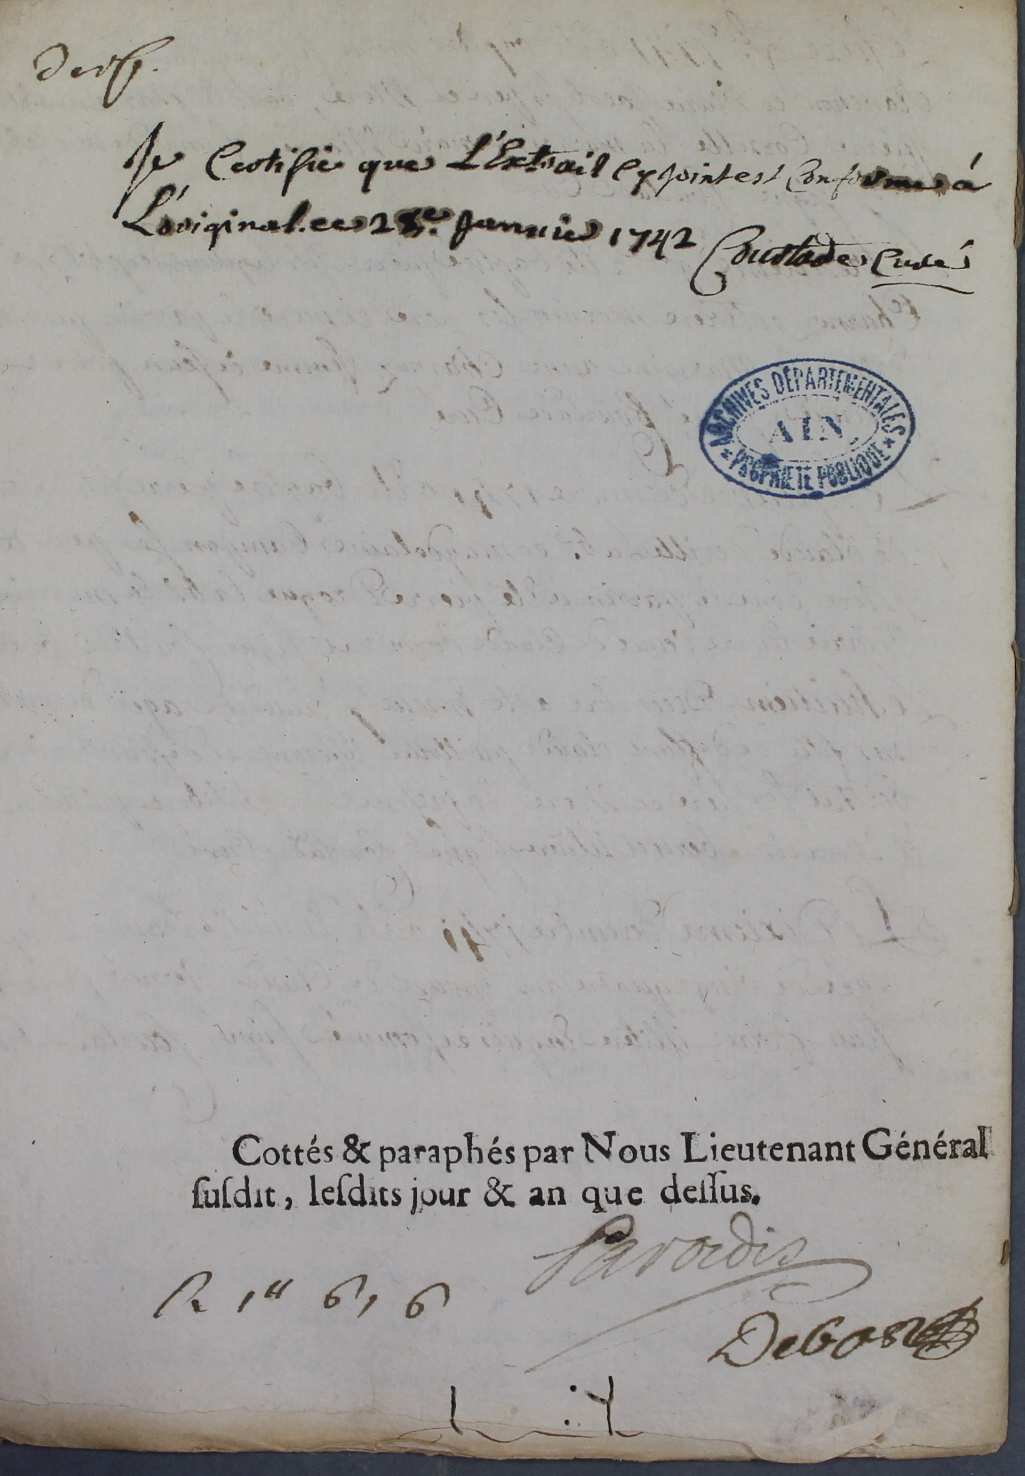 Je Certifie que L'Extrait Cy joint est Conforme á
L'original. ce 28e. Janvier 1742 Coustade Curé
ARCHIVES DÉPARTEMENTALES
AIN
PROPRIÉTÉ PUBLIQUE
Cottés & paraphés par Nous Lieutenant Général
ſuſdit, leſdits jour & an que deſſus.
Paradis
R 1" 6, 6